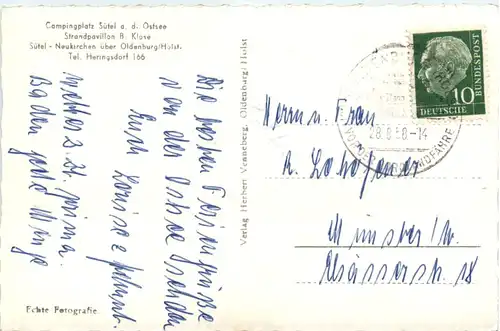 Campingplatz Sütel a. d. Ostsee
Strandpavillon B. Klove
Sütel - Neukirchen über Oldenburg/Holst.
Tel. Heringsdorf 166
Die besten Feriengrüße
von der Ostsee senden
Euch Louise
Wetter z. Zt. prima.
Baden jede Menge
Echte Fotografie
Verlag Herbert Venneberg, Oldenburg/Holst
DEUTSCHE
BUNDESPOST
10
28.8.58-14
Herrn u. Frau
A.
Münster/W.
Elsässerstr. 18